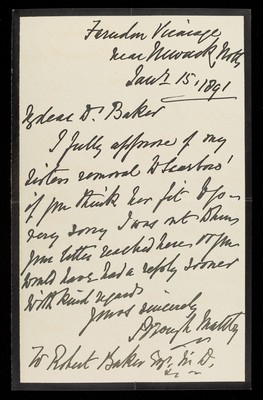 Farndon Vicarage
near Newark Notts
Jany 15, 1891
My dear Dr. Baker
I fully approve of my
sisters removal to Scarboro'
if you think her fit to go -
very sorry I was not at home
your letter reached here or you
would have had a reply sooner
With kind regards
Yours sincerely
To Robert Baker Esqr. M.D.